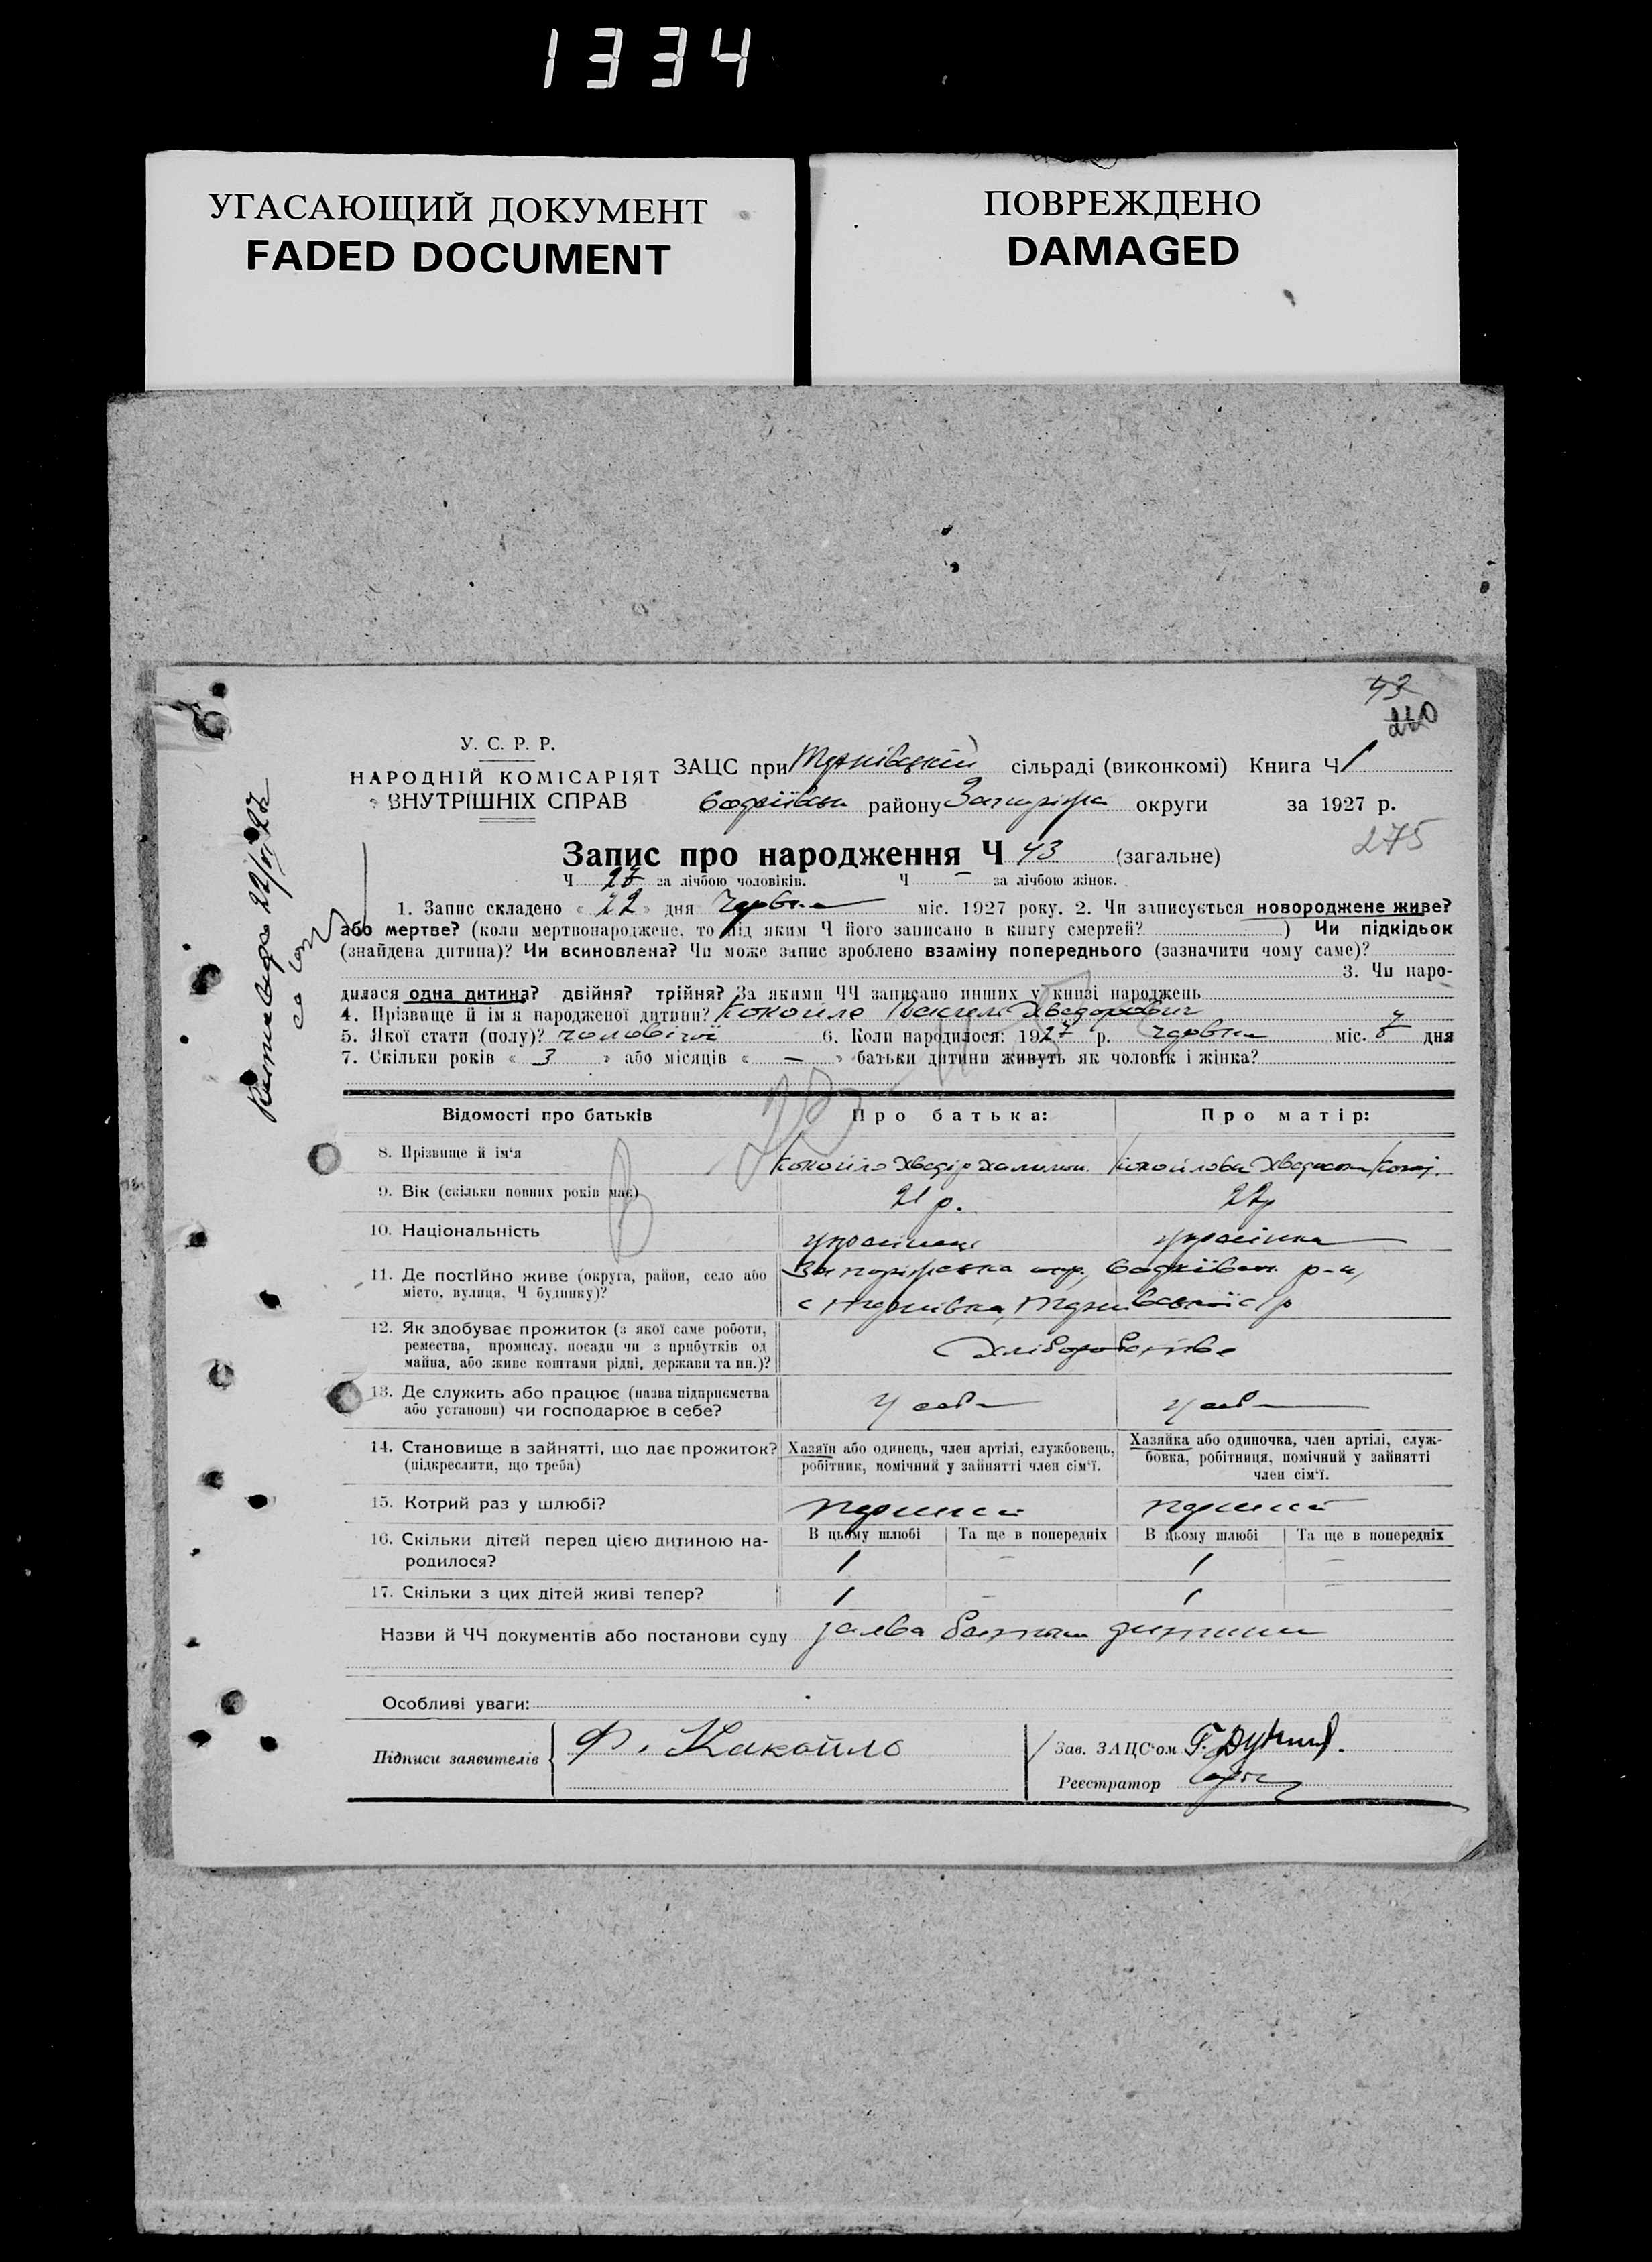 1334
УГАСАЮЩИЙ ДОКУМЕНТ
FADED DOCUMENT
ПОВРЕЖДЕНО
DAMAGED
43
240
У. С. Р. Р.
НАРОДНІЙ КОМІСАРІЯТ
ВНУТРІШНІХ СПРАВ
ЗАЦС при сільраді (виконкомі) Книга Ч 1
району округи за 1927 р.
275
Запис про народження Ч 43 (загальне)
Ч 27 за лічбою чоловіків. Ч – за лічбою жінок.
1. Запис складено « 22 » дня Червня міс. 1927 року. 2. Чи записується новороджене живе?
або мертве? (коли мертвонароджене, то під яким Ч його записано в книгу смертей? ) Чи підкідьок
(знайдена дитина)? Чи всиновлена? Чи може запис зроблено взаміну попереднього (зазначити чому саме)?
3. Чи наро-
дилася одна дитина? двійня? трійня? За якими ЧЧ записано инших у книзі народжень
4. Прізвище й ім'я народженої дитини? Кокойло Василь Хведорович
5. Якої стати (полу)? чоловічої 6. Коли народилося: 1927 р. червня міс. дня
7. Скільки років « 3 » або місяців « – » батьки дитини живуть як чоловік і жінка?
Відомості про батьків Про батька: Про матір:
8. Прізвище й ім'я Кокойло Хведір
9. Вік (скільки повних років має) 21 р. 22 р
10. Національність українець українка
11. Де постійно живе (округа, район, село або
місто, вулиця, Ч будинку)?
12. Як здобуває прожиток (з якої саме роботи,
ремества, промислу, посади чи з прибутків од
майна, або живе коштами рідні, держави та ин.)?
Хліборобство
13. Де служить або працює (назва підприємства
або установи) чи господарює в себе?
У себе у себе
14. Становище в зайнятті, що дає прожиток?
(підкреслити, що треба)
Хазяїн або одинець, член артілі, службовець,
робітник, помічний у зайнятті член сім'ї.
Хазяйка або одиночка, член артілі, служ-
бовка, робітниця, помічний у зайнятті
член сім'ї.
15. Котрий раз у шлюбі? перший перший
16. Скільки дітей перед цією дитиною на-
родилося?
В цьому шлюбі Та ще в попередніх В цьому шлюбі Та ще в попередніх
1 – 1 –
17. Скільки з цих дітей живі тепер? 1 – 1 –
Назви й ЧЧ документів або постанови суду заява батька дитини
Особливі уваги:
Підписи заявителів Ф. Какойло
Зав. ЗАЦС'ом
Реєстратор